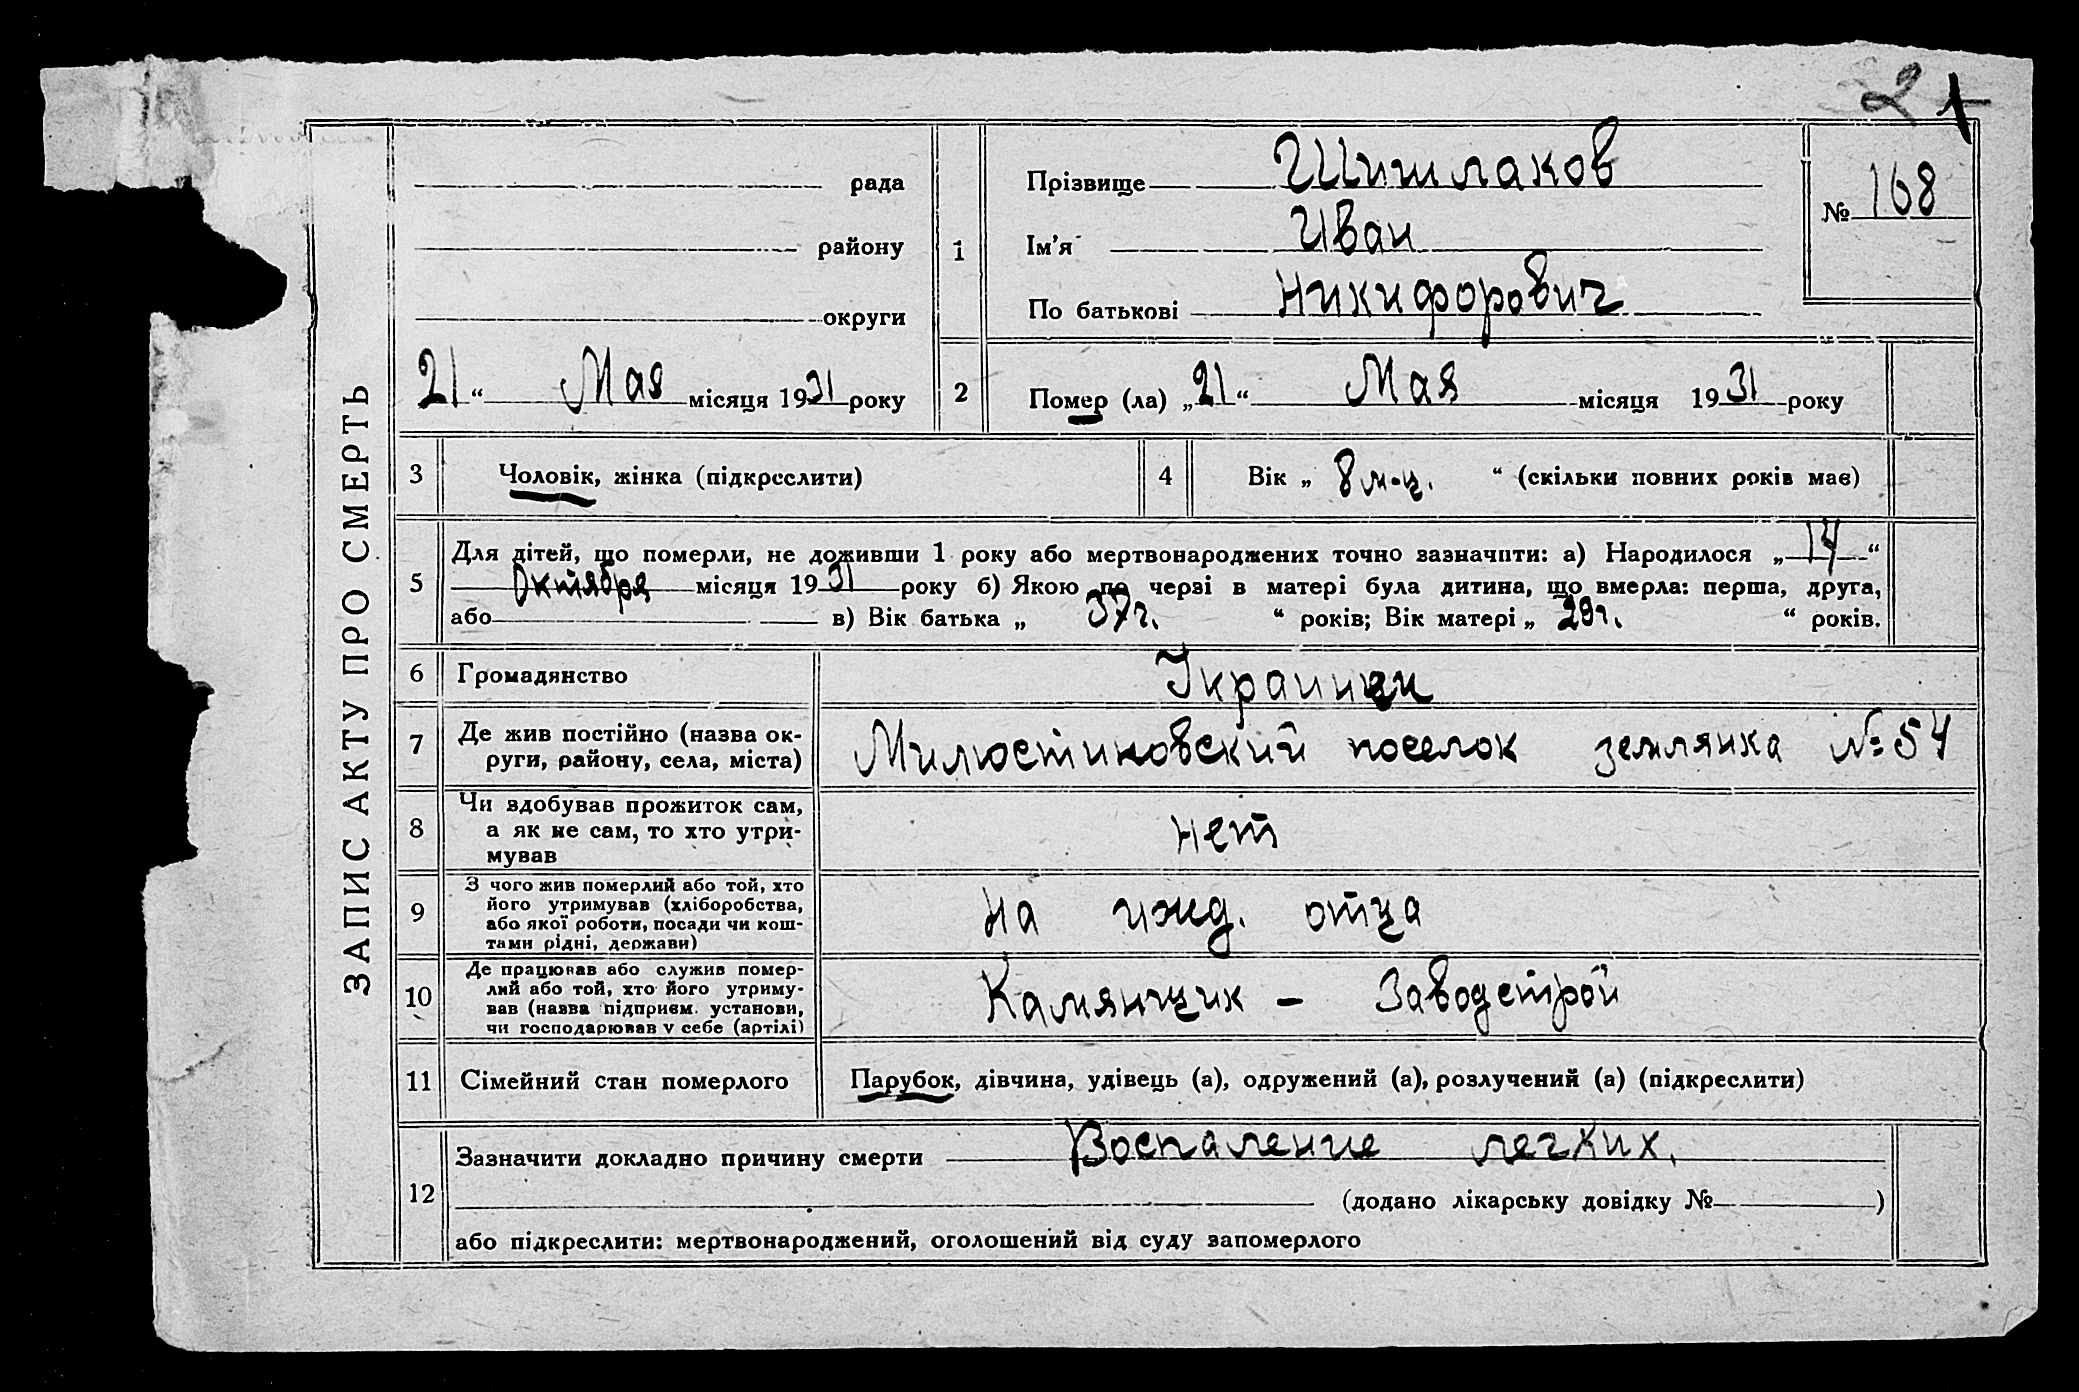 2 1
ЗАПИС АКТУ ПРО СМЕРТЬ
рада
району
округи
21 “ Мая місяця 1931 року
1
Прізвище Шишлаков
Ім’я Иван
По батькові Никифорович
№ 168
2
Помер (ла) „21“ Мая місяця 1931 року
3
Чоловік, жінка (підкреслити)
4
Вік „ 8 м-ц. “ (скільки повних років має)
5
Для дітей, що померли, не доживши 1 року або мертвонароджених точно зазначити: а) Народилося „14“
Октября місяця 1931 року б) Якою по черзі в матері була дитина, що вмерла: перша, друга,
або в) Вік батька „ 37 г. “ років; Вік матері „ 29 г. “ років.
6
Громадянство
7
Де жив постійно (назва ок-
руги, району, села, міста)
Милюстиновский поселок землянка № 54
8
Чи здобував прожиток сам,
а як не сам, то хто утри-
мував
нет
9
З чого жив померлий або той, хто
його утримував (хліборобства,
або якої роботи, посади чи кош-
тами рідні, держави)
на ижд. отца
10
Де працював або служив помер-
лий або той, хто його утриму-
вав (назва підприєм. установи,
чи господарював у себе (артілі)
Камянщик – Заводстрой
11
Сімейний стан померлого
Парубок, дівчина, удівець (а), одружений (а), розлучений (а) (підкреслити)
12
Зазначити докладно причину смерти Воспаление легких.
(додано лікарську довідку № )
або підкреслити: мертвонароджений, оголошений від суду запомерлого